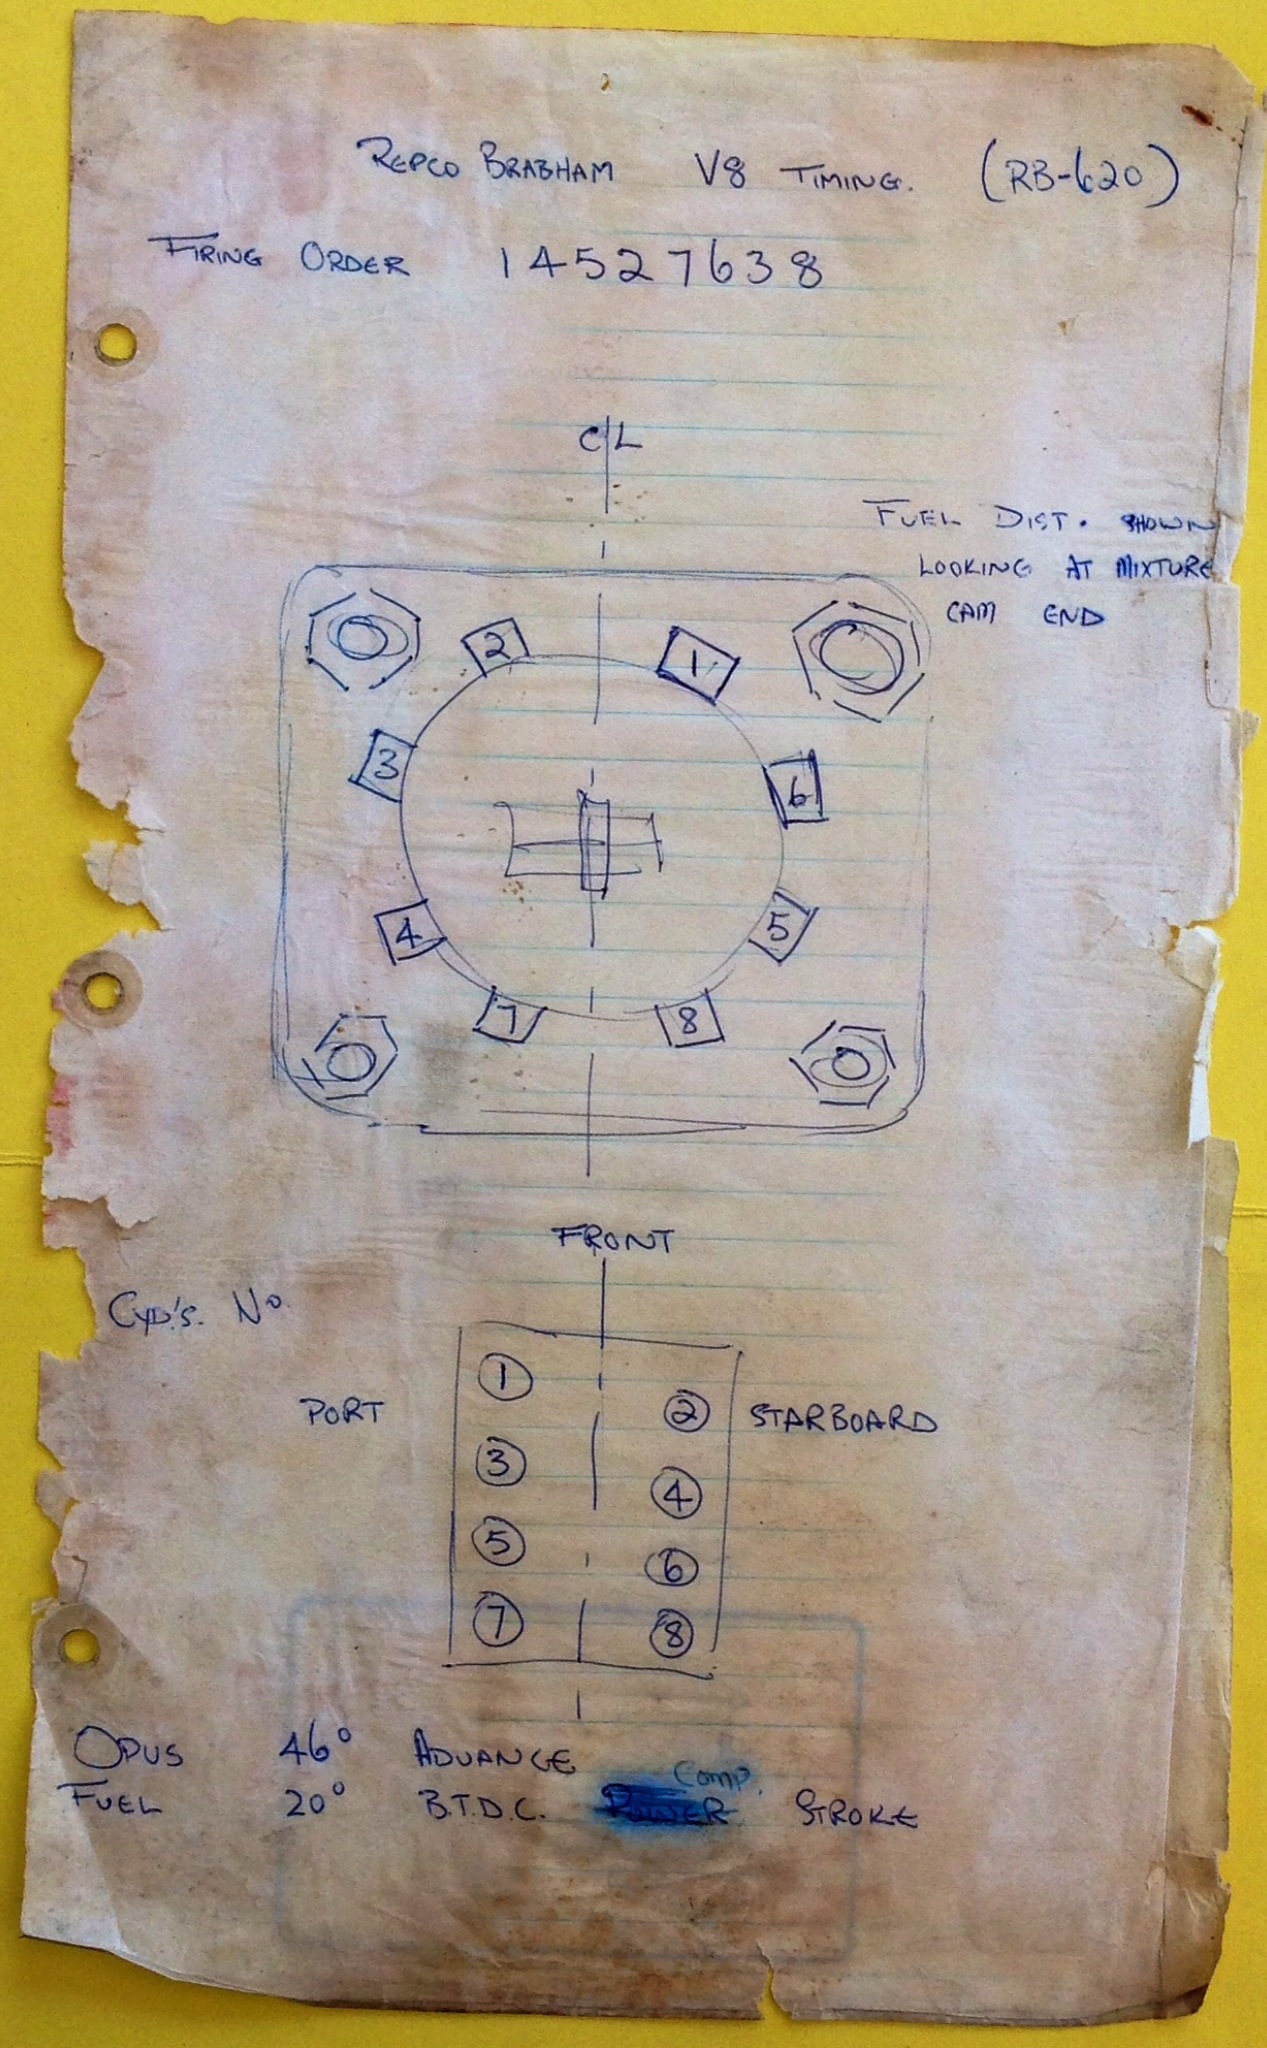 REPCO BRABHAM V8 TIMING. (RB-620)
FIRING ORDER 14527638
C/L
FUEL DIST. SHOWN
LOOKING AT MIXTURE
CAM END
2 1
3 6
4 5
7 8
FRONT
CYD'S. No.
1
PORT 2 STARBOARD
3
4
5
6
7
8
OPUS 46° ADVANCE
Comp.
FUEL 20° B.T.D.C. POWER STROKE